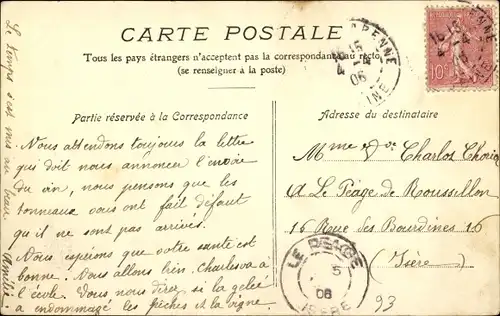 CARTE POSTALE
Tous les pays étrangers n'acceptent pas la correspondance au recto
(se renseigner à la poste)
Partie réservée à la Correspondance
Nous attendons toujours la lettre
qui doit nous annoncer l'envoie
du vin, nous pensons que les
tonneaux vous ont fait défaut
qu'il ne sont pas arrivés.
Nous espérons que votre santé est
bonne. Nous allons bien. Charles va à
l'école. Vous nous direz si la gelée
a endommagé les pêches et la vigne
Le temps s'est mis au beau
Amitiés
Adresse du destinataire
Mme Vve Charlos
A Le Péage de Roussillon
16 Rue des Bourdines 16
(Isère)
93
10
LE PEAGE
5
06
ISERE
15
06